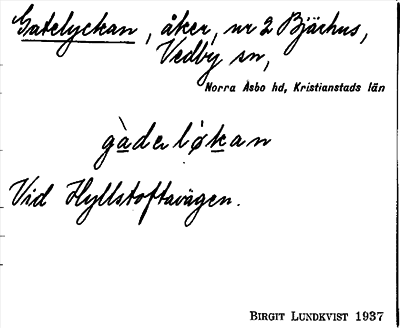 Gatelyckan, åker, nr 2 Bjärhus,
Vedby sn,
Norra Åsbo hd, Kristianstads län
gàderløkan
Vid Hyllstoftavägen.
BIRGIT LUNDKVIST 1937